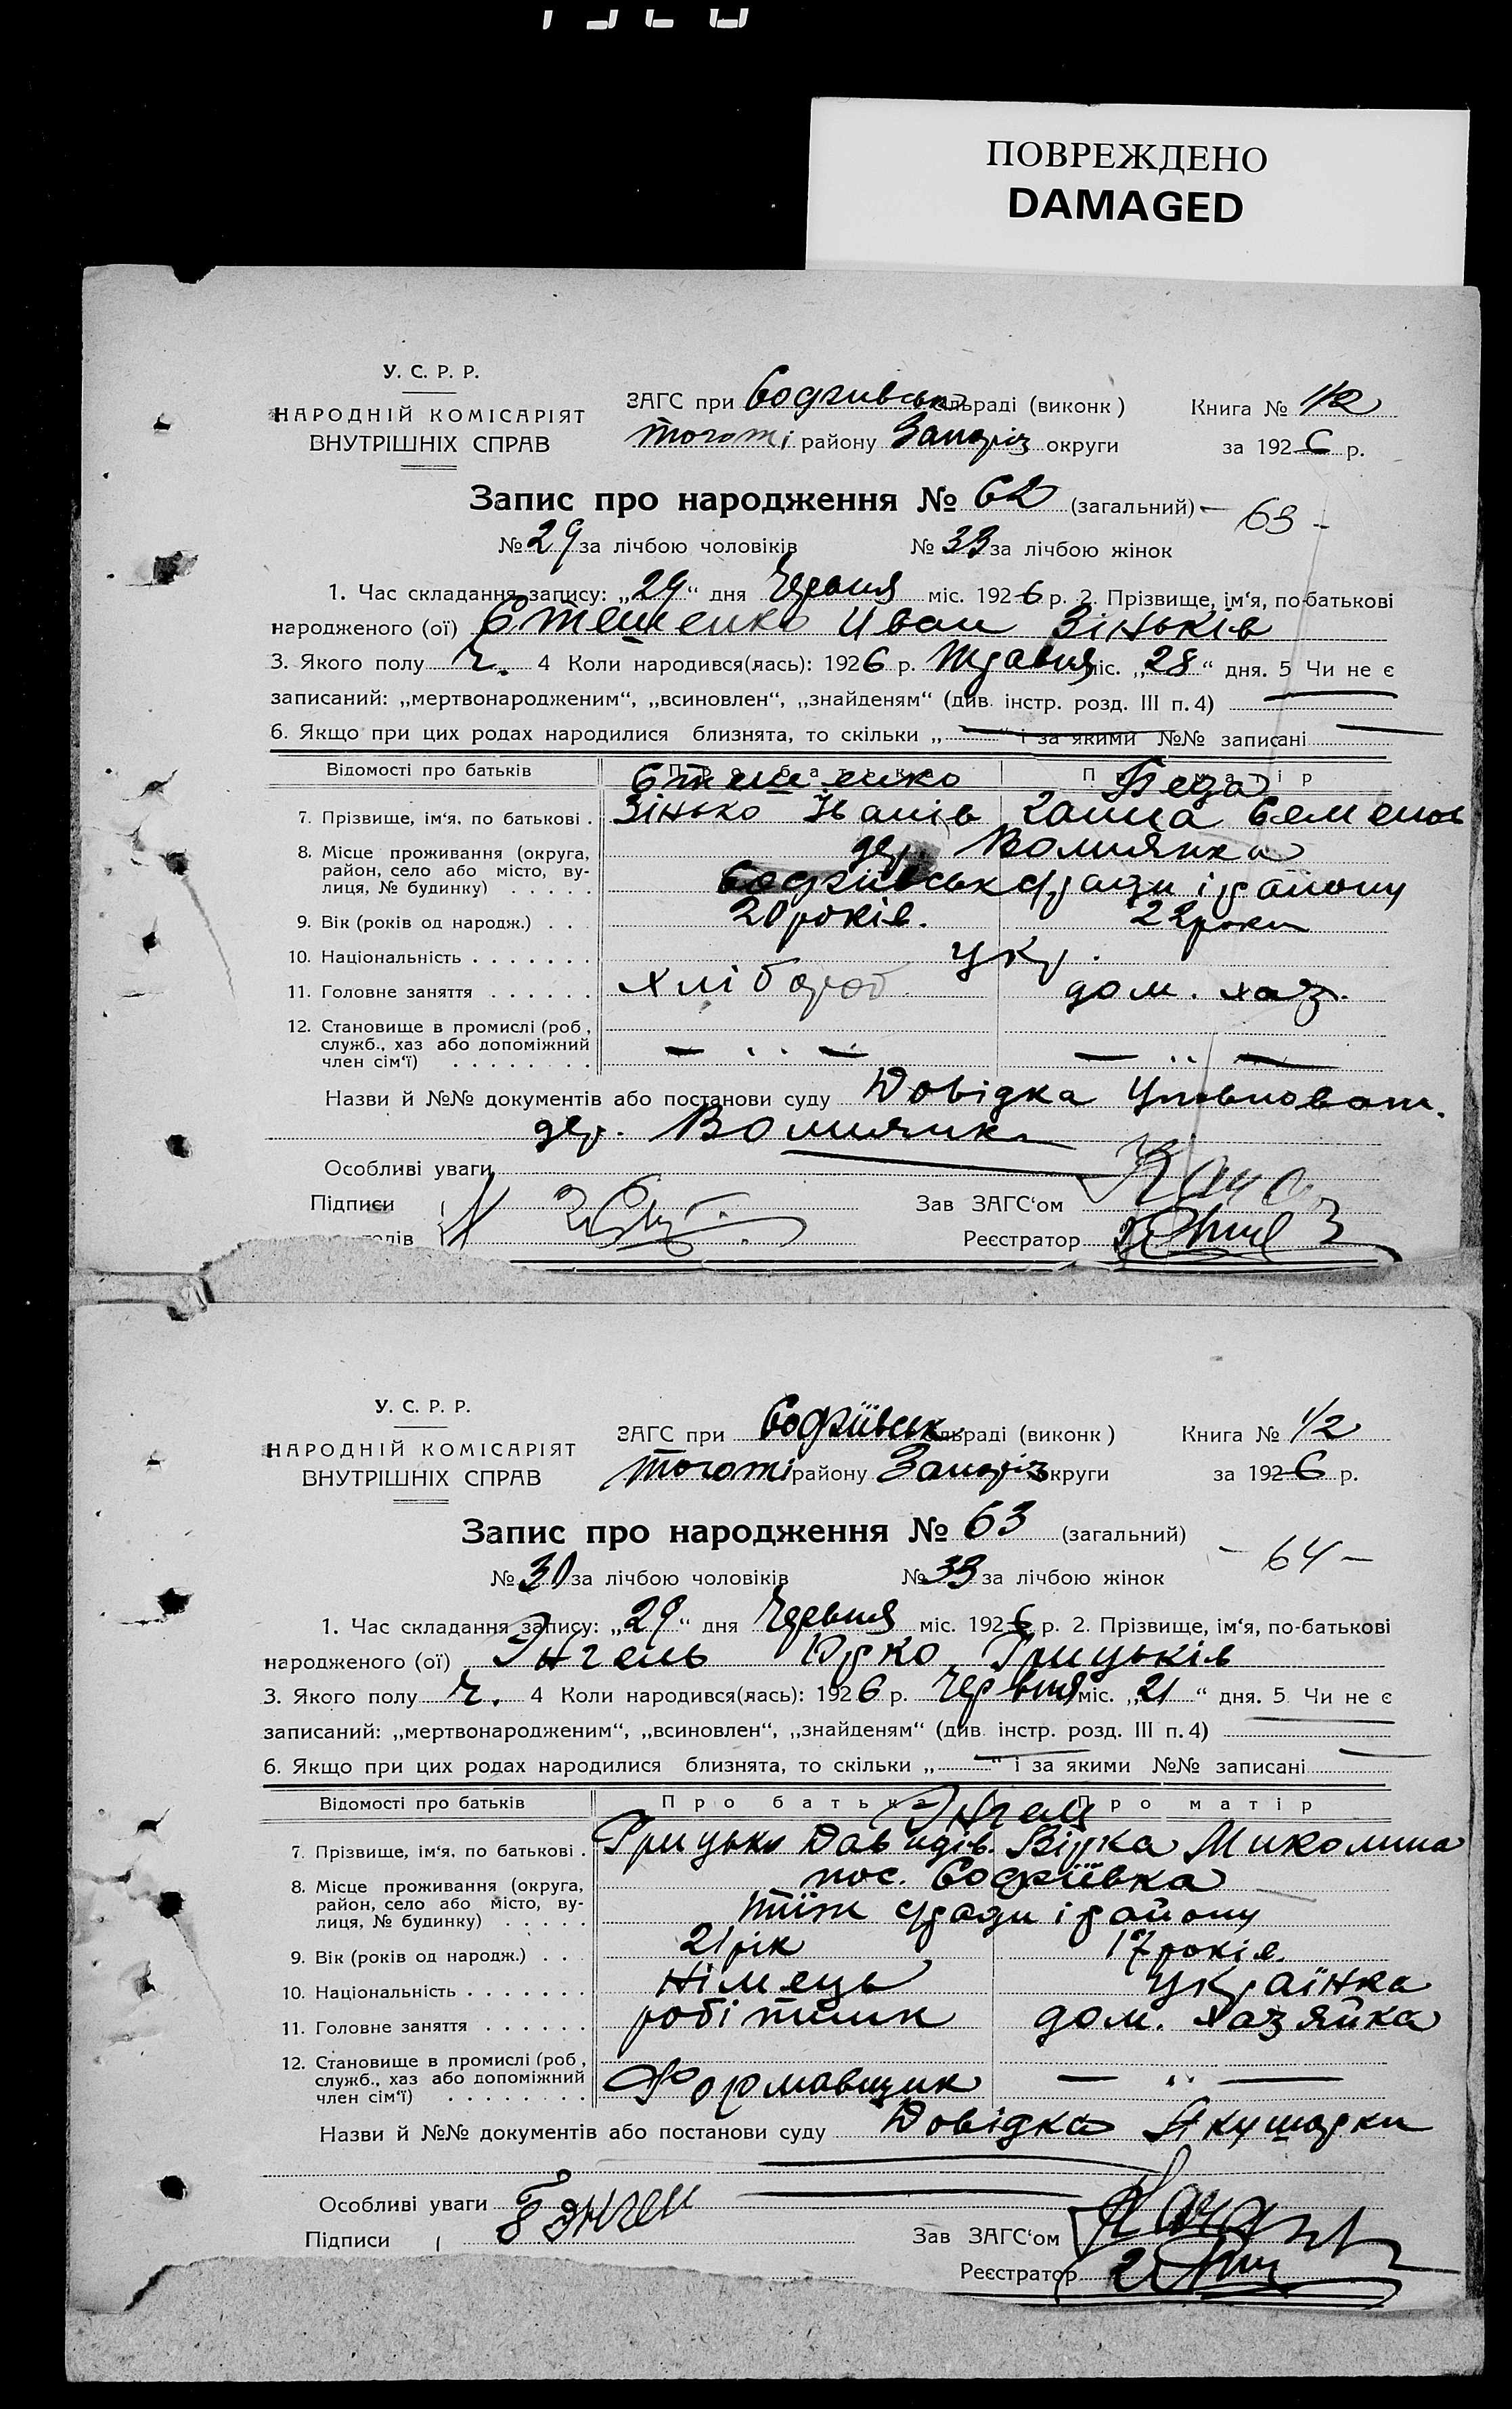 ПОВРЕЖДЕНО
DAMAGED
У. С. Р. Р.
НАРОДНІЙ КОМІСАРІЯТ
ВНУТРІШНІХ СПРАВ
ЗАГС при Софиївськ сільраді (виконк)
Книга № 1/2
тоготі району Запоріз округи
за 1926 р.
Запис про народження № 62 (загальний)
— 63 —
№ 29 за лічбою чоловіків № 33 за лічбою жінок
1. Час складання запису: „29“ дня Червня міс. 1926 р. 2. Прізвище, ім‘я, по-батькові
народженого (ої) Стешенко Иван Зіньків
3. Якого полу ч. 4 Коли народився(лась): 1926 р. Травня міс. „28“ дня. 5 Чи не є
записаний: „мертвонародженим“, „всиновлен“, „знайденям“ (див. інстр. розд. III п. 4) —
6. Якщо при цих родах народилися близнята, то скільки „—“ і за якими №№ записані —
Відомості про батьків Про батька Про матір
Стешенко
7. Прізвище, ім‘я, по батькові . Зінько Іванів Ганна Семенов
8. Місце проживання (округа, район, село або місто, вулиця, № будинку) . . . . . дер. Волнянка
Софиївськ с/ради і району
9. Вік (років од народж.) . . . 20 років. 22 роки
10. Національність . . . . . . . укр.
11. Головне заняття . . . . . . хлібороб дом. хаз.
12. Становище в промислі (роб., служб., хаз або допоміжний член сім‘ї) . . . . . . . . — . . — — . . —
Назви й №№ документів або постанови суду Довідка Уповноват.
дер. Волнянки
Особливі уваги
Підписи
Зав ЗАГС‘ом
Реєстратор
У. С. Р. Р.
НАРОДНІЙ КОМІСАРІЯТ
ВНУТРІШНІХ СПРАВ
ЗАГС при Софиївськ. сільраді (виконк)
Книга № 1/2
тоготі району Запоріз округи
за 1926 р.
Запис про народження № 63 (загальний)
— 64 —
№ 30 за лічбою чоловіків № 33 за лічбою жінок
1. Час складання запису: „29“ дня Червня міс. 1926 р. 2. Прізвище, ім‘я, по-батькові
народженого (ої) Энгель Юрко Грицьків
3. Якого полу ч. 4 Коли народився(лась): 1926 р. Червня міс. „21“ дня. 5 Чи не є
записаний: „мертвонародженим“, „всиновлен“, „знайденям“ (див. інстр. розд. III п. 4) —
6. Якщо при цих родах народилися близнята, то скільки „—“ і за якими №№ записані —
Відомості про батьків Про батька Про матір
Энгель
7. Прізвище, ім‘я, по батькові . Грицько Давидів. Вірка Миколина
8. Місце проживання (округа, район, село або місто, вулиця, № будинку) . . . . . пос. Софиївка
тіїж с/ради і району
9. Вік (років од народж.) . . . 21 рік 17 років.
10. Національність . . . . . . . німець українка
11. Головне заняття . . . . . . робітник дом. хазяйка
12. Становище в промислі (роб., служб., хаз або допоміжний член сім‘ї) . . . . . . . . Формавщик — . . —
Назви й №№ документів або постанови суду Довідка Якушарки
Особливі уваги
Підписи
Зав ЗАГС‘ом
Реєстратор